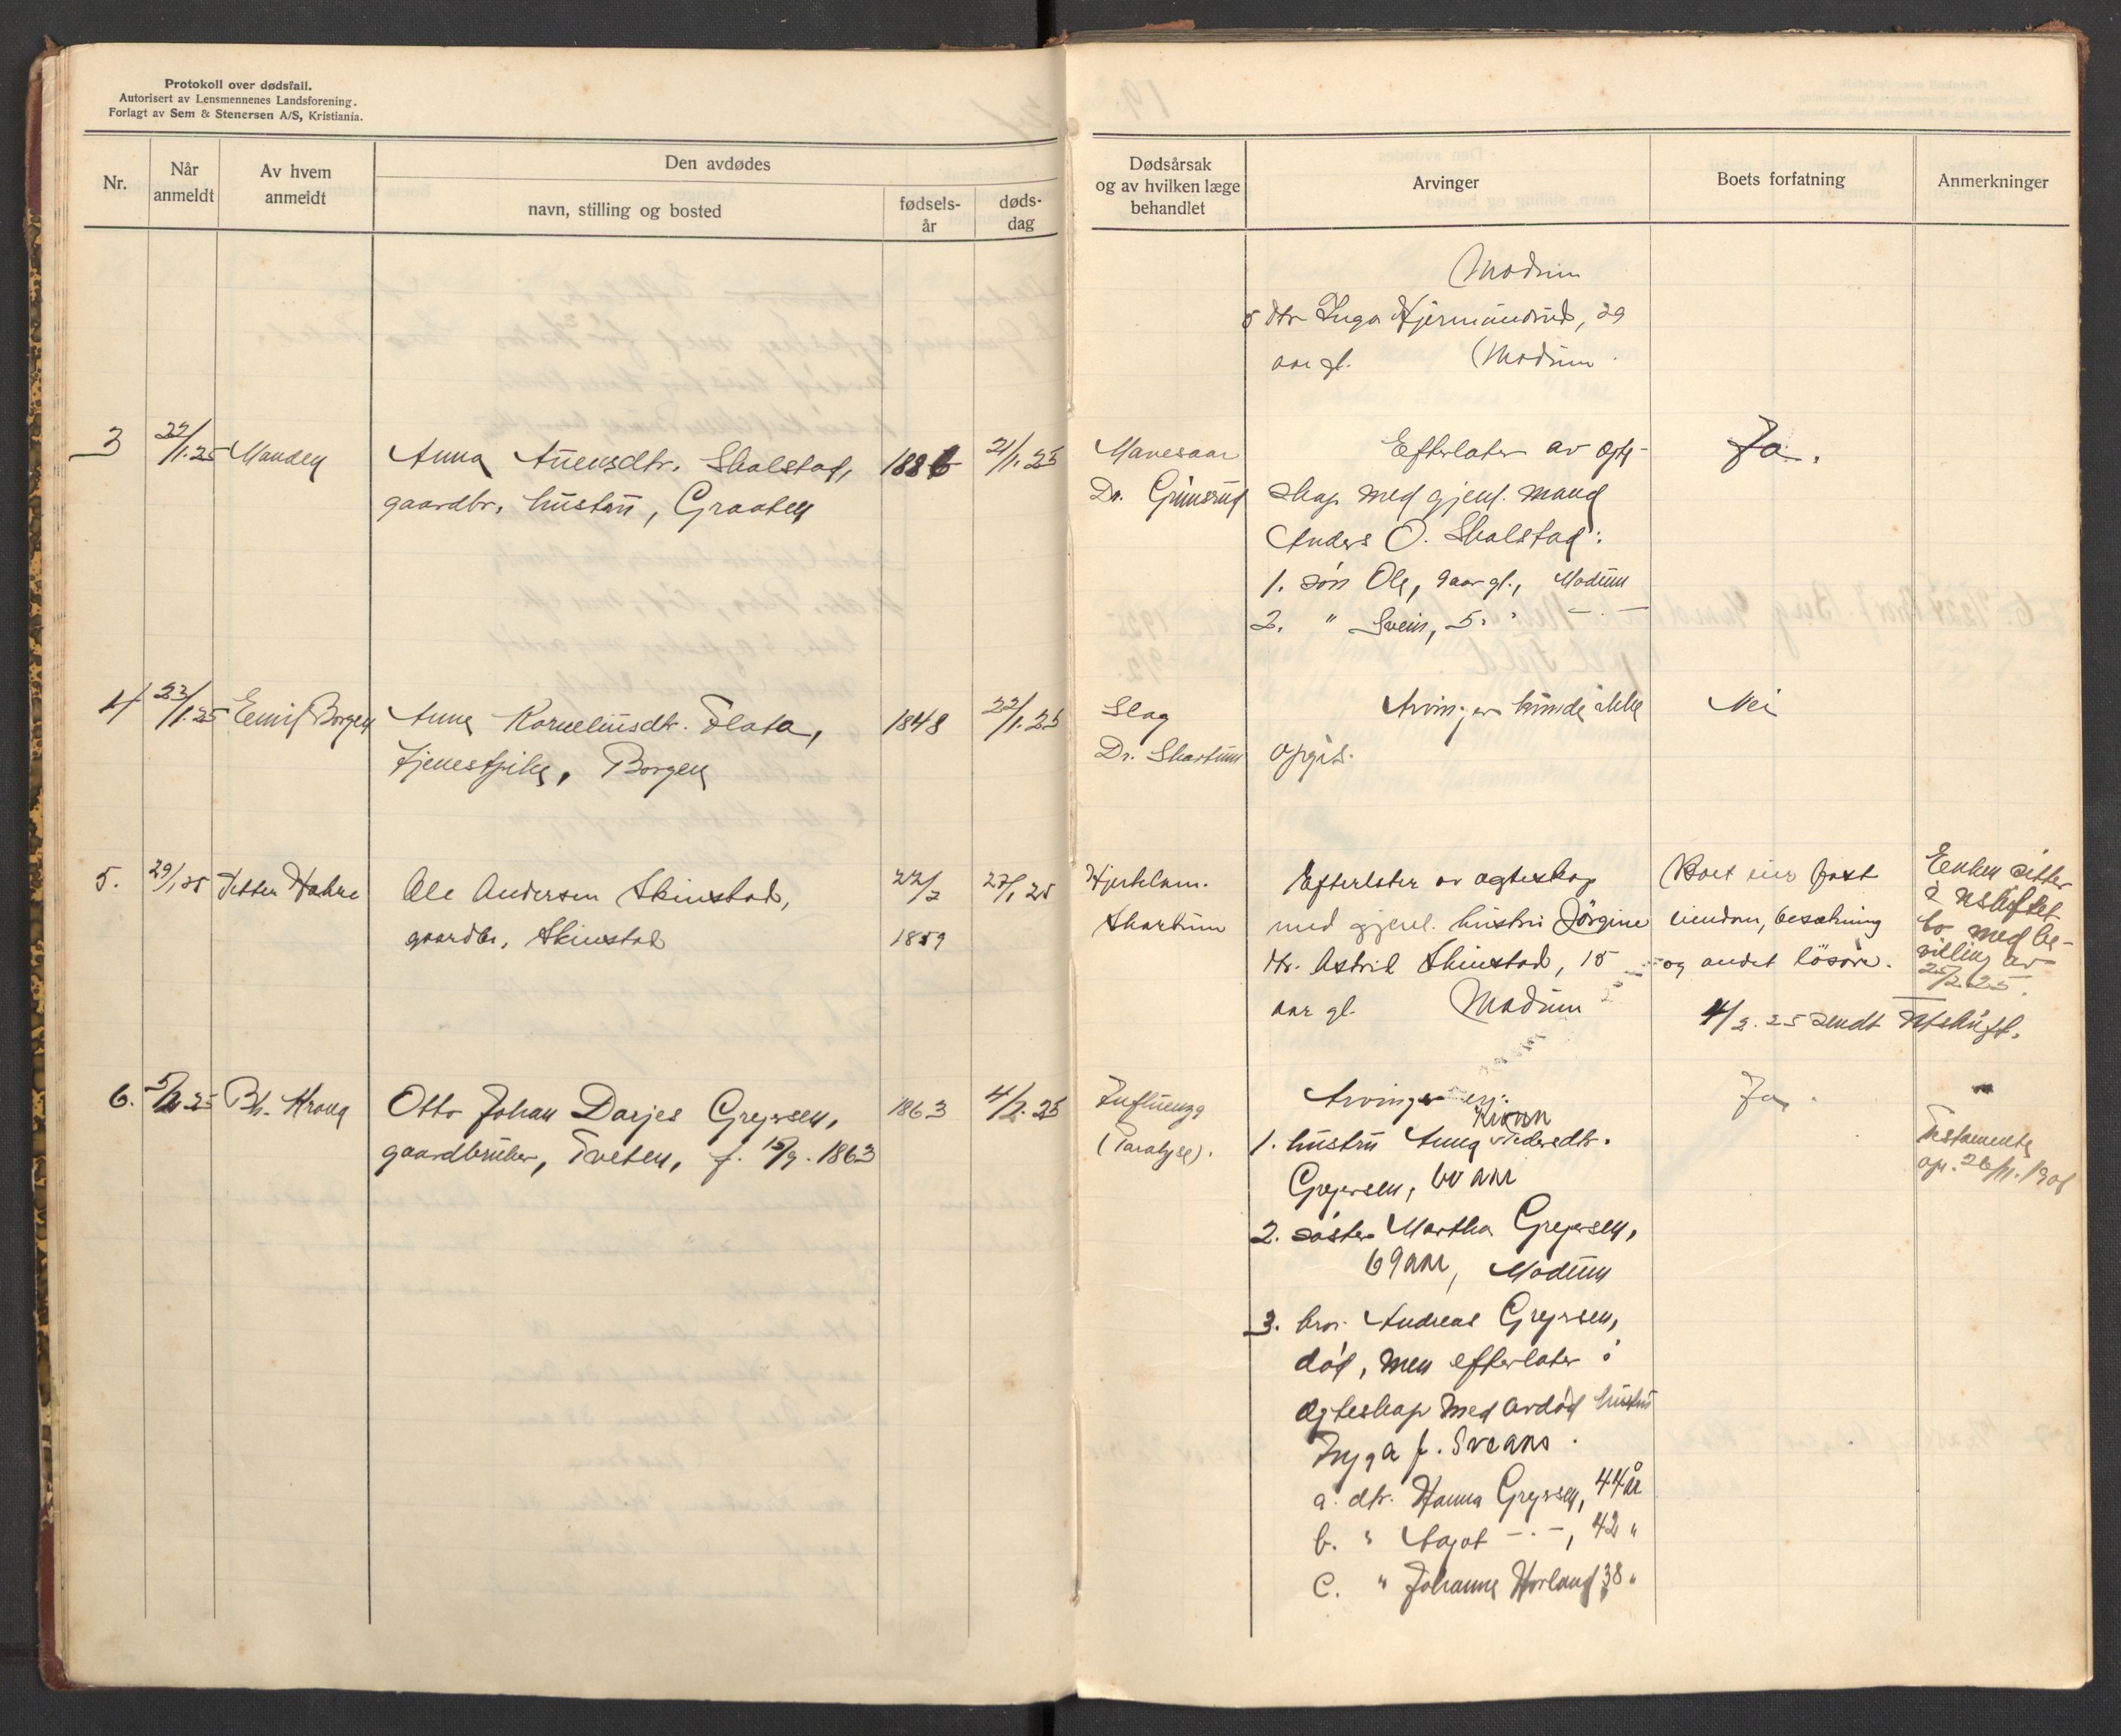 Protokoll over dødsfall.
Autorisert av Lensmennenes Landsforening.
Forlagt av Sem & Stenersen A/S, Kristiania.
Nr.
Når anmeldt
Av hvem anmeldt
Den avdødes
navn, stilling og bosted
fødsels-år
døds-dag
Dødsårsak
og av hvilken læge
behandlet
Arvinger
Boets forfatning
Anmerkninger
Modum
5 dtr Inga Hjermundrud, 29
aar gl. Modum
3 22/1.25 Manden
Anna Auensdtr. Skalstad,
gaardbr. hustru, Graaten
1886
21/1.25
Mavesaar
Dr. Grimsrud
Efterlater av ægte-
skap med gjenl. mand
Anders O. Skalstad:
1. søn Ole, 9 aar gl., Modum
2. " Svein, 5 " " — . —
Ja.
4 23/1.25 Emil Borgen
Anne Korneliusdtr. Flata,
tjenestpike, Borgen
1848
22/1.25
Slag
Dr. Skartum
Arvinger kunde ikke
opgis.
Nei
5. 29/1 25 Petter Hahre
Ole Andersen Skinstad,
gaardbr, Skinstad
22/7
1859
27/1 25
Hjertelam.
Skartum
Efterlater av ægteskap
med gjenl. hustru Jörgine
dtr. Astrid Skinstad, 15
aar gl. Modum
Boet eier fast
eiendom, besætning
og andet lösøre.
4/2.25 sendt
Enken sitter
i uskiftet
bo med be-
villing av
25/2.25.
6. 5/2.25 Bh. Kroug
Otto Johan Darjes Grejersen,
gaardbruker, Tveten, f. 15/9. 1863
1863
4/2.25
Influenza
(Paralyse).
Arvinger er:
1. hustru Anna Tederedtr.
Grejersen, 60 aar
2. søster Martha Grejersen,
69 aar, Modum
3. bror Andreas Grejersen,
död, men efterlater i
ægteskap med avdöd hustru
Inga f. Sveaas.
a. dtr. Hanna Grejersen, 44 år
b. " Aagot — . —, 42 "
c. " Johanne Horland 38 "
Ja.
Testamente
opr. 26/11. 1908